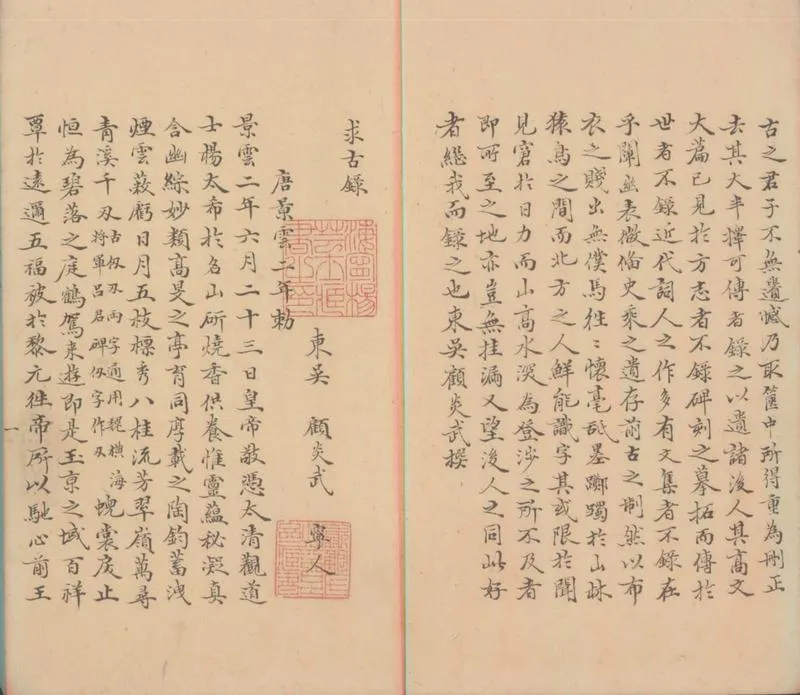 古之君子不無遺憾乃取篋中所得重為刪正
去其大半擇可傳者錄之以遺諸後人其高文
大篇已見於方志者不錄碑刻之摹拓而傳於
世者不錄近代詞人之作多有文集者不錄在
乎闡幽表微備史乘之遺存前古之制然以布
衣之賤出無僕馬往〻懷毫舐墨躑躅於山林
猿鳥之間而北方之人鮮能識字其或限於聞
見窘於日力而山高水深為登涉之所不及者
即所至之地亦豈無挂漏又望後人之同此好
者繼我而錄之也東吳顧炎武撰
求古錄
東吳 顧炎武 寧人
唐景雲二年勅
景雲二年六月二十三日皇帝敬憑太清觀道
士楊太希於名山斫燒香供養惟靈蘊秘凝真
含幽綜妙類高旻之亭育同厚載之陶鈞蓄洩
煙雲蔽虧日月五枝標秀八桂流芳翠嶺萬尋
青溪千刃古仭刃兩字通用魏橫海將軍呂君碑仭字作刃蜺裳戾止
恒為碧落之庭鶴駕來遊即是玉京之域百祥
覃於遠邇五福被於黎元往帝所以馳心前王
一